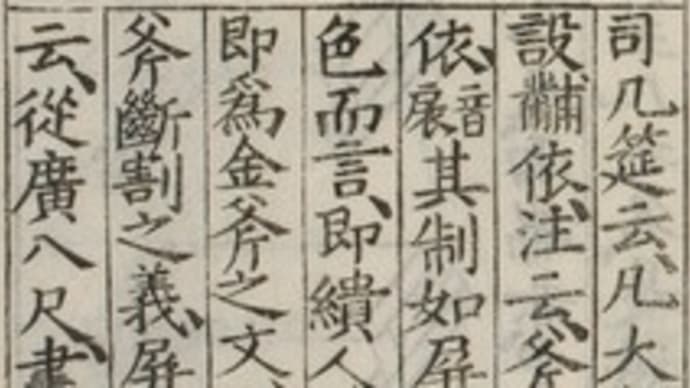 司几筵云、凡大
設黼依、注云、斧
依、音扆其制如屏
色而言、即繢人
即爲金斧之文、
斧斷割之義、屏
云、從廣八尺、畫